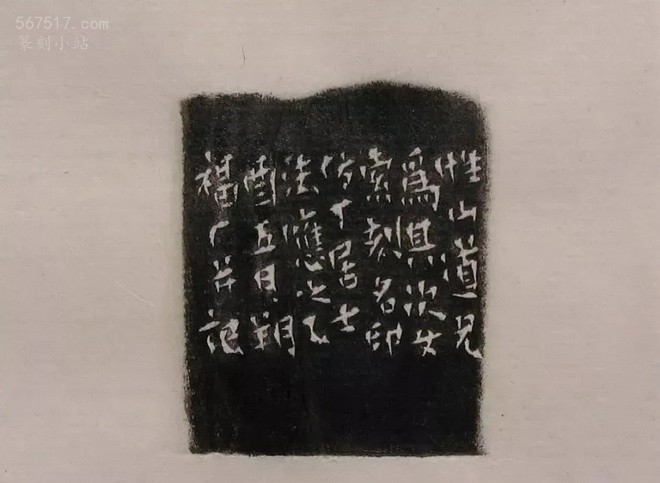 567517.com
篆刻小站
山道兄
爲其次女
索刻名印
仿丁居士
法應之乙
酉五月朔
福厂并記